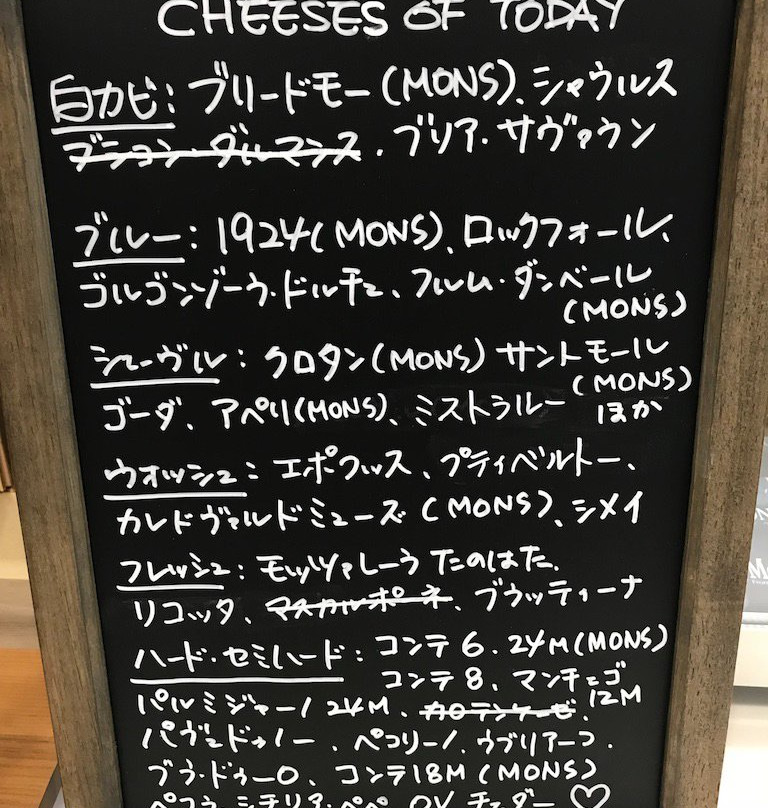 CHEESES OF TODAY
白カビ：ブリードモー(MONS)、シャウルス
ブション・ダルマンス．ブリア・サヴァラン
ブルー：1924(MONS)、ロックフォール、
ゴルゴンゾーラ・ドルチェ、フルム・ダンベール
(MONS)
シェーヴル：クロタン(MONS) サントモール
(MONS)
ゴーダ、アペリ(MONS)、ミストラルー ほか
ウオッシュ：エポワッス、プティベルトー、
カレドヴァルドミューズ(MONS)、シメイ
フレッシュ：モッツァレーラ たのはた．
リコッタ、マスカルポーネ、ブラッティーナ
ハード・セミハード：コンテ6．24M(MONS)
コンテ8、マンチェゴ
12M
パルミジャーノ 24M、カロテンケーゼ．
パヴェドゥノー、ペコリーノ、ウブリアーコ．
ブラ・ドゥーロ、コンテ18M(MONS)